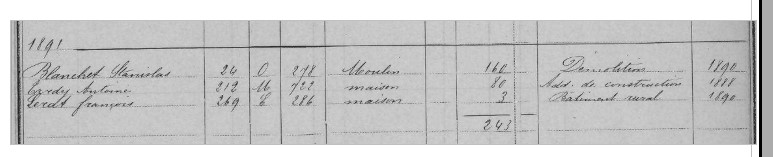 1891
Blanchet Stanislas 24 O 278 Moulin 160 Démolition 1890
Antoine 212 M 722 maison 80 Add. de construction 1888
françois 269 C 286 maison 3 Bâtiment rural 1890
243